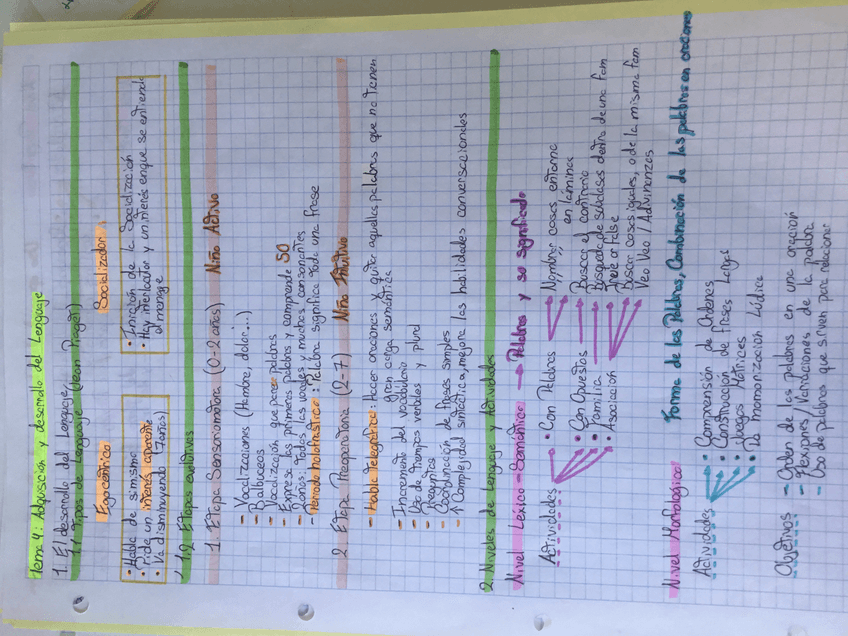 Tema 4: Adquisición y desarrollo del Lenguaje
1. El desarrollo del Lenguaje
1.1 Tipos de Lenguaje (Jean Piaget)
Egocéntrico
- Habla de si mismo
- Pide un interés aparente
- Va disminuyendo (7años)
Socializador
- Iniciación de la Socialización
- Hay interlocutor y un interés en que se entienda
el mensaje
1.2 Etapas evolutivas
1. Etapa Sensoriomotora (0-2 años) Niño Activo
- Vocalizaciones (Hambre, dolor...)
- Balbuceos
- Vocalización que parece palabras
- Expresa las primeras palabras y comprende 50
- Sonios: Todas las vocales y muchas consonantes
- Periodo holofrástico: Palabra significa toda una frase
2. Etapa Preoperatoria (2-7) Niño Intuitivo
- Habla Telegráfica: Hacer oraciones y quitar aquellas palabras que no tienen
gran carga semántica
- Incremento del vocabulario
- Uso de tiempos verbales y plural
- Preguntas
- Coordinación de frases simples
- ↑ Complejidad sintáctica, mejora las habilidades conversacionales
2. Niveles de Lenguaje y Actividades
Nivel Léxico-Semántico → Palabras y su significado
Actividades
• Con Palabras
• Con Opuestos
• Familia
• Asociación
Nombrar cosas entorno
" " en láminas
Buscar el contrario
Búsqueda de subclases dentro de una fam
True or False
Buscar cosas iguales, o de la misma fam
Veo Veo / Adivinanzas
Nivel Morfológico Forma de las Palabras, Combinación de las palabras en oraciones
Actividades
• Comprensión de Ordenes
• Construcción de frases Largas
• Juegos Motrices
• De memorización Lúdica
Objetivos
- Orden de las palabras en una oración
- Flexiones/Variaciones de la palabra
- Uso de palabras que sirven para relacionar